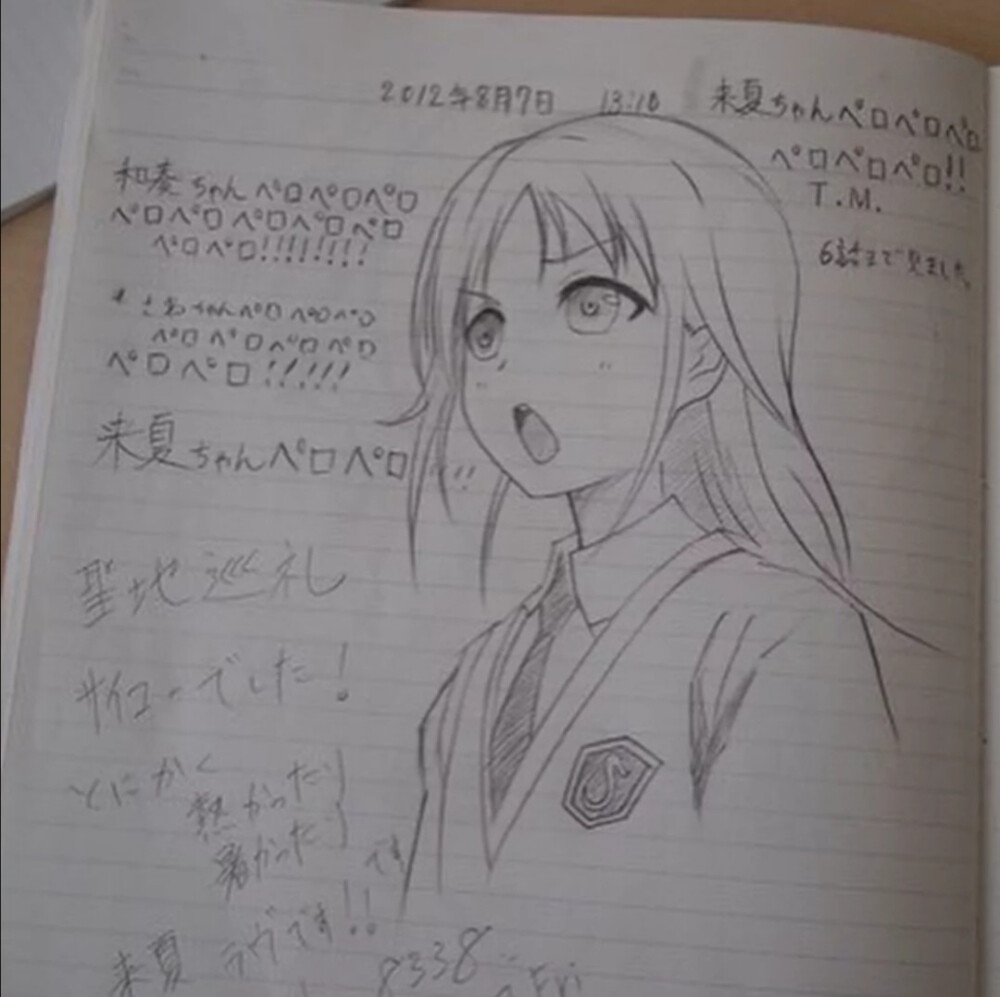 2012年8月7日 13:10
来夏ちゃんペロペロペロ
ペロペロペロ!!
T.M.
6話まで見ました。
和奏ちゃんペロペロペロ
ペロペロペロペロペロ
ペロペロ!!!!!!!!
さわちゃんペロペロペロ
ペロペロペロペロ
ペロペロ!!!!!
来夏ちゃんペロペロ!!
聖地巡礼
サイコーでした!
とにかく
熱かった
暑かった
です
来夏 ラヴです!!
8338
Fri